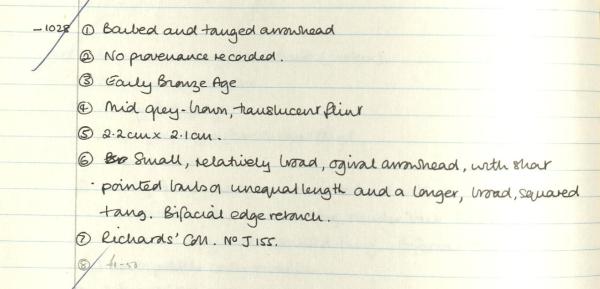 -1028 ① Barbed and tanged arrowhead
② No provenance recorded.
③ Early Bronze Age
④ Mid grey-brown, translucent flint
⑤ 2.2cm x 2.1cm.
⑥ Small, relatively broad, ogival arrowhead, with short
pointed barbs of unequal length and a longer, broad, squared
tang. Bifacial edge retouch.
⑦ Richards' Coll. No J155.
⑧